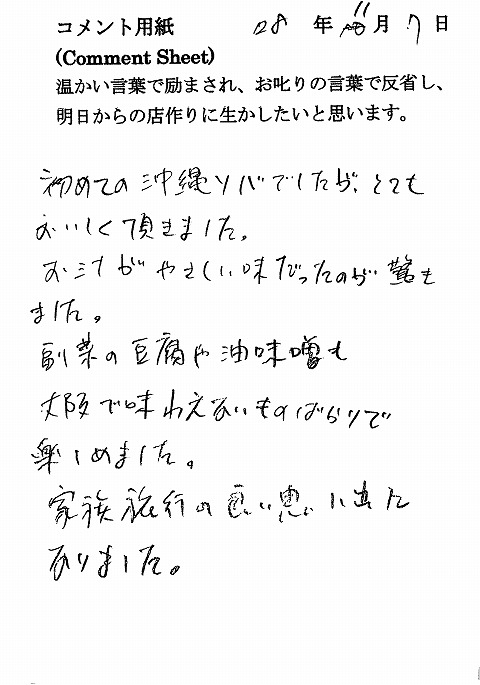 コメント用紙 28年11月7日
(Comment Sheet)
温かい言葉で励まされ、お叱りの言葉で反省し、
明日からの店作りに生かしたいと思います。
初めての沖縄ソバでしたが、とても
おいしく頂きました。
お汁がやさしい味だったのが驚き
ました。
副菜の豆腐や油味噌も
大阪で味わえないものばかりで
楽しめました。
家族旅行の良い思い出に
なりました。